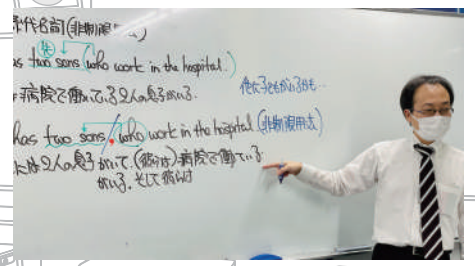 係代名詞(非制限用法)
as two sons (who work in the hospital.)
病院で働いている2人の息子がいる.
他に子どもがいるかも..
has two sons, who work in the hospital (非制限用法)
には2人の息子がいて、(彼らは)病院で働いている
がいる. そして彼らは